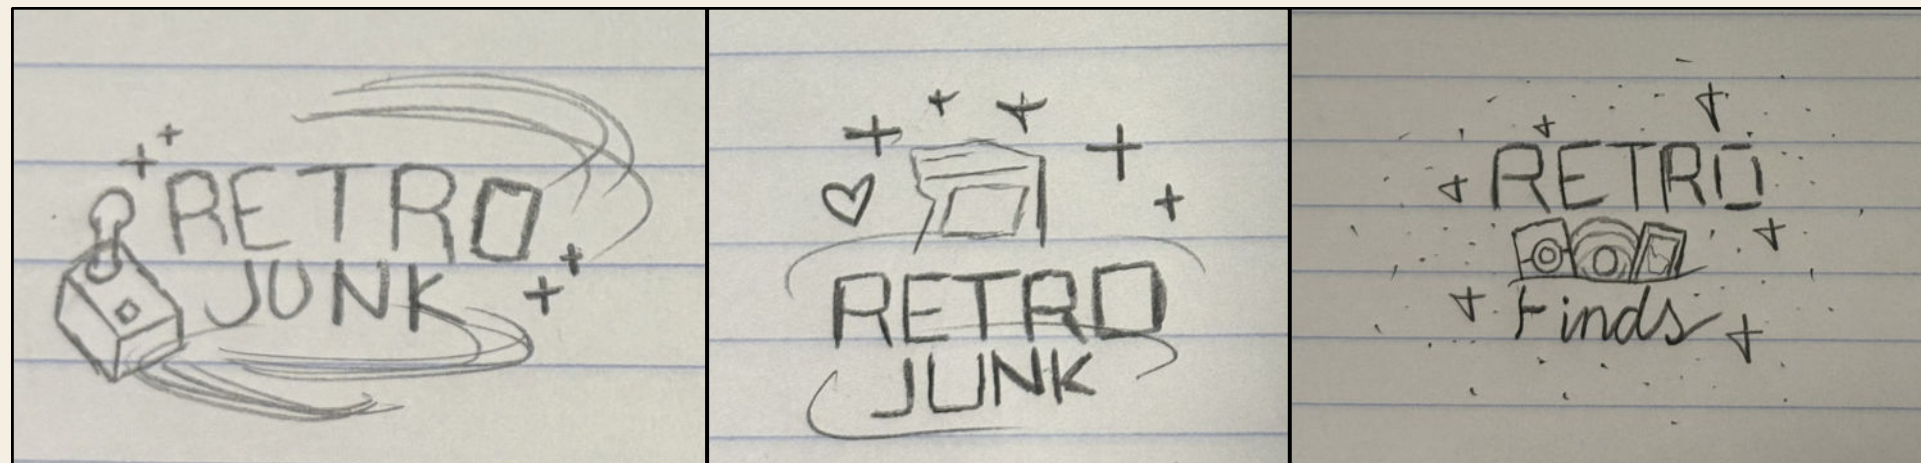 RETRO
JUNK
RETRO
JUNK
RETRO
Finds